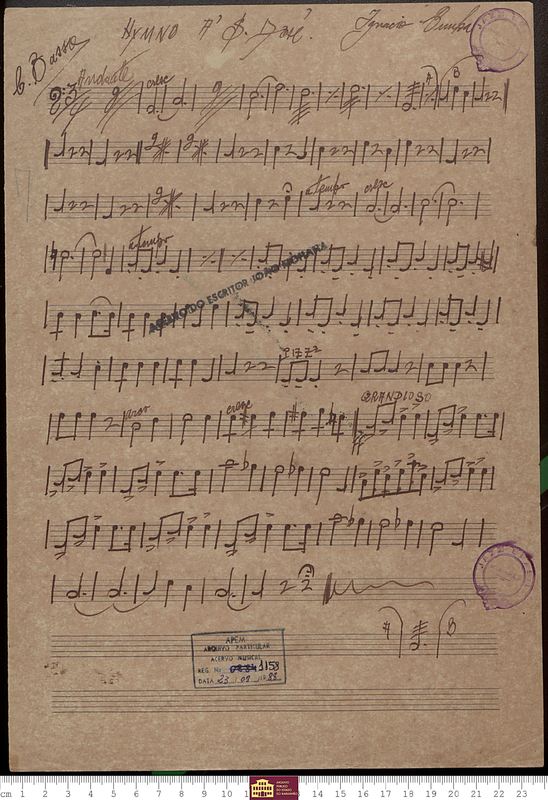 C. Basso
HYMNO A' S. José.
Ignacio
Andante
cresc
A B
a tempo cresc
a tempo
ACERVO DO ESCRITOR JOÃO MOHANA
PIZZ
arco cresc GRANDIOSO
ff
A B
APEM
ARQUIVO PARTICULAR
ACERVO MUSICAL
REG. Nº 0884 1158
DATA 23 / 09 /
cm 1 2 3 4 5 6 7 8 9 10 14 15 16 17 18 19 20 21 22 23